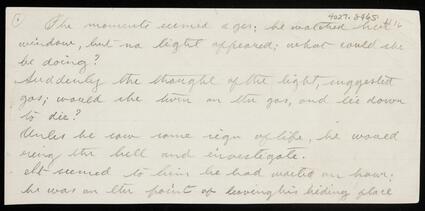 4027.8465
#16
The moments seemed ages; he watched her
window, but no light appeared; what could she
be doing?
Suddenly the thought of the light, suggested
gas; would she turn on the gas, and lie down
to die?
Unless he saw some sign of life, he would
ring the bell and investigate.
It seemed to him he had waited an hour;
he was on the point of leaving his hiding place